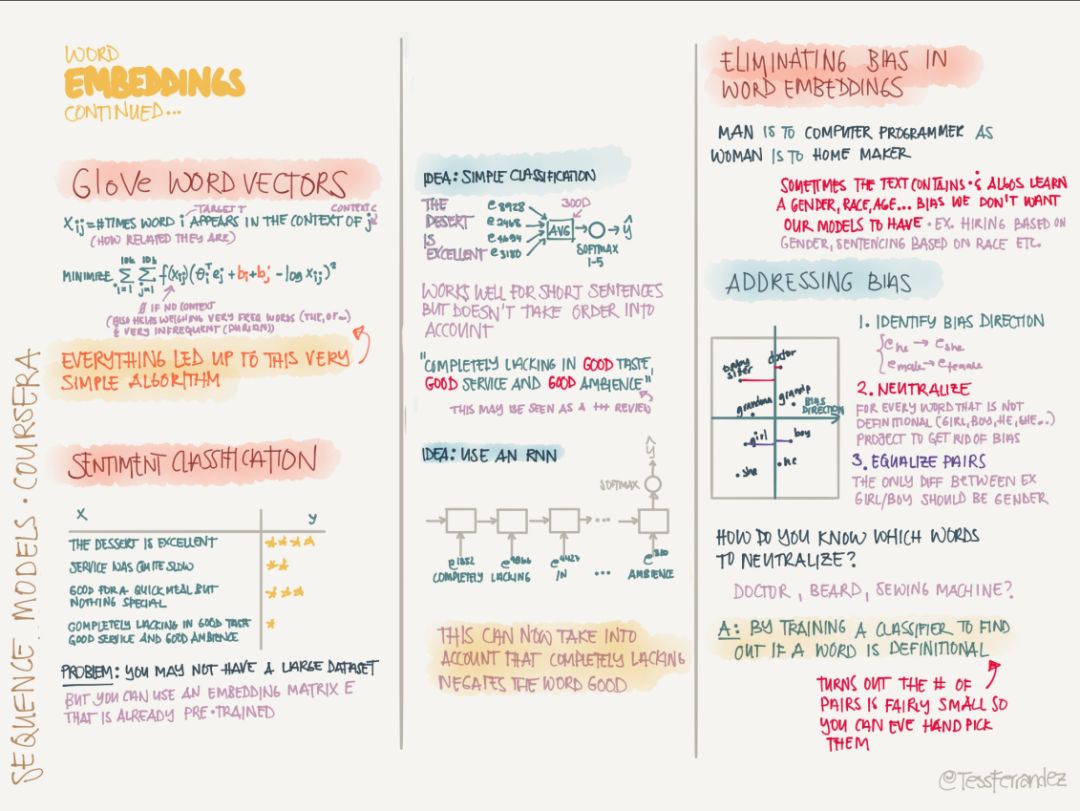 WORD
EMBEDDINGS
CONTINUED...
GloVe WORD VECTORS
TARGET T
CONTEXT C
Xij = # TIMES WORD i APPEARS IN THE CONTEXT OF j
(HOW RELATED THEY ARE)
MINIMIZE 10k Σ i=1 10k Σ j=1 f(Xij)(θiᵀej + bi + bj' - log Xij)²
IF NO CONTEXT
(ALSO HELPS WEIGHING VERY FREQ WORDS (THE, OF...)
& VERY INFREQUENT (DURIAN))
EVERYTHING LED UP TO THIS VERY
SIMPLE ALGORITHM
SENTIMENT CLASSIFICATION
X y
THE DESSERT IS EXCELLENT ★★★★
SERVICE WAS QUITE SLOW ★★
GOOD FOR A QUICK MEAL BUT ★★★
NOTHING SPECIAL
COMPLETELY LACKING IN GOOD TASTE ★
GOOD SERVICE AND GOOD AMBIENCE
PROBLEM: YOU MAY NOT HAVE A LARGE DATASET
BUT YOU CAN USE AN EMBEDDING MATRIX E
THAT IS ALREADY PRE-TRAINED
SEQUENCE MODELS · COURSERA
IDEA: SIMPLE CLASSIFICATION
THE e8928
DESERT e2468
IS e4694
EXCELLENT e3180
300D
AVG
ŷ
SOFTMAX
1-5
WORKS WELL FOR SHORT SENTENCES
BUT DOESN'T TAKE ORDER INTO
ACCOUNT
"COMPLETELY LACKING IN GOOD TASTE,
GOOD SERVICE AND GOOD AMBIENCE"
THIS MAY BE SEEN AS A +++ REVIEW
IDEA: USE AN RNN
ŷ
SOFTMAX
...
e1852 e4966 e4427 e330
COMPLETELY LACKING IN ... AMBIENCE
THIS CAN NOW TAKE INTO
ACCOUNT THAT COMPLETELY LACKING
NEGATES THE WORD GOOD
ELIMINATING BIAS IN
WORD EMBEDDINGS
MAN IS TO COMPUTER PROGRAMMER AS
WOMAN IS TO HOME MAKER
SOMETIMES THE TEXT CONTAINS · & ALGOS LEARN
A GENDER, RACE, AGE... BIAS WE DON'T WANT
OUR MODELS TO HAVE · EX. HIRING BASED ON
GENDER, SENTENCING BASED ON RACE ETC.
ADDRESSING BIAS
baby
sitter
doctor
grandma
grandp
BIAS
DIRECTION
girl
boy
she
he
1. IDENTIFY BIAS DIRECTION
{ehe → eshe
emale → efemale
2. NEUTRALIZE
FOR EVERY WORD THAT IS NOT
DEFINITIONAL (GIRL, BOY, HE, SHE...)
PROJECT TO GET RID OF BIAS
3. EQUALIZE PAIRS
THE ONLY DIFF BETWEEN EX
GIRL/BOY SHOULD BE GENDER
HOW DO YOU KNOW WHICH WORDS
TO NEUTRALIZE?
DOCTOR, BEARD, SEWING MACHINE?
A: BY TRAINING A CLASSIFIER TO FIND
OUT IF A WORD IS DEFINITIONAL
TURNS OUT THE # OF
PAIRS IS FAIRLY SMALL SO
YOU CAN EVE HAND PICK
THEM
@TessFerrandez